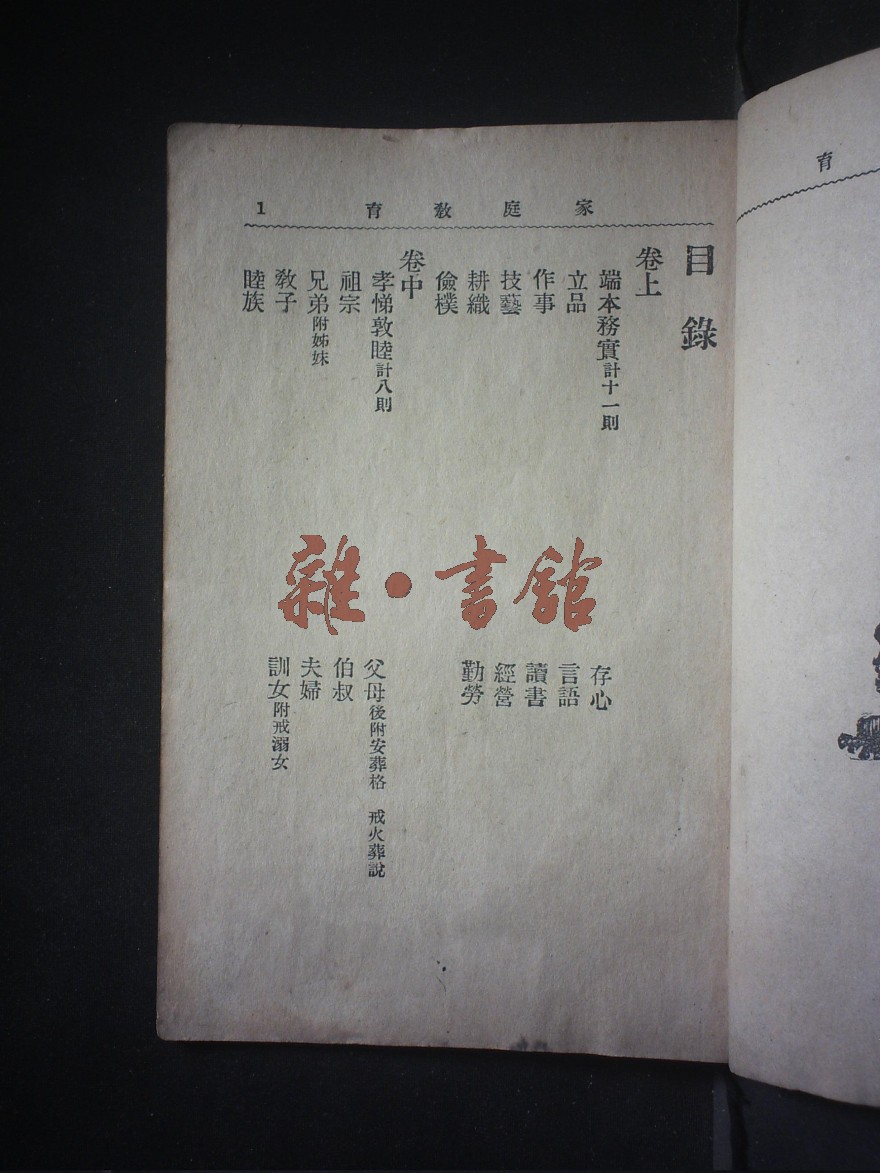 家庭教育 1
目錄
卷上
端本務實計十一則
存心
立品
言語
作事
讀書
技藝
經營
耕織
勤勞
儉樸
卷中
孝悌敦睦計八則
父母後附安葬格 戒火葬說
祖宗
伯叔
兄弟附姊妹
夫婦
教子
訓女附戒溺女
睦族
雜·書館
育